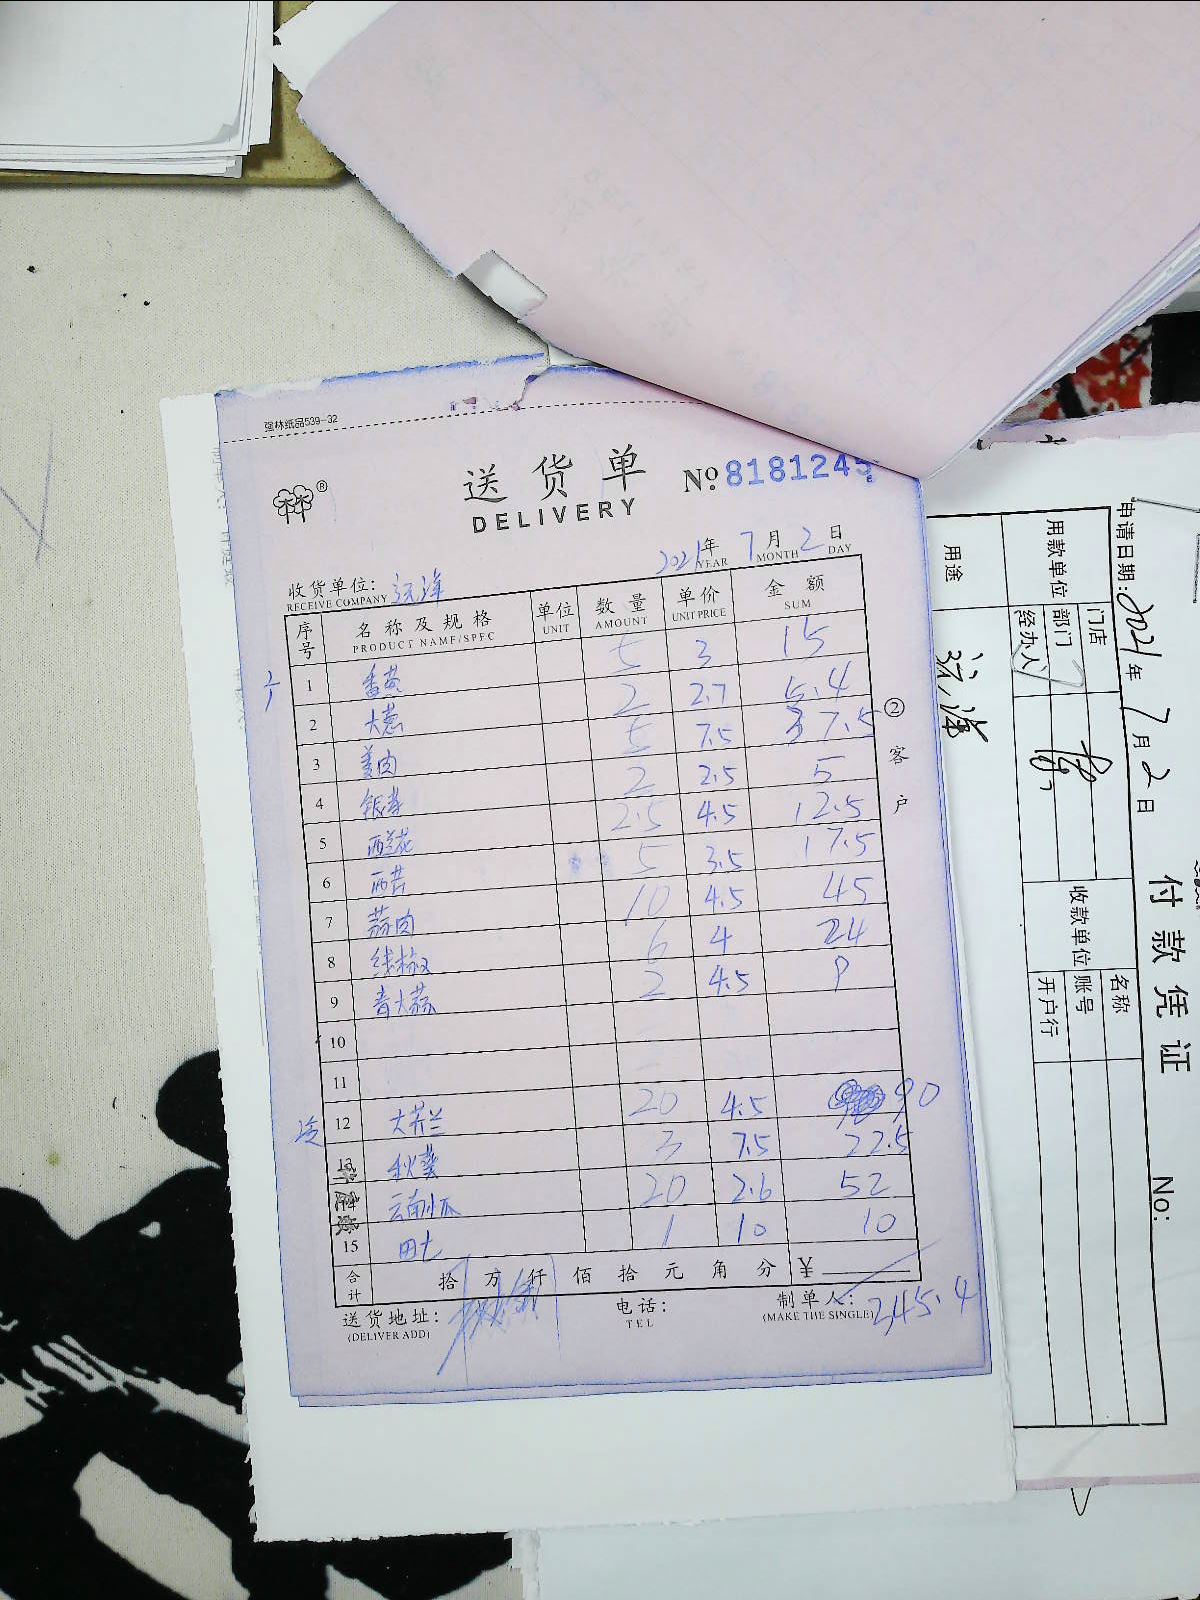 强林纸品539-32
送货单
DELIVERY
No 8181245
2021年 7月 2日
YEAR MONTH DAY
收货单位:
RECEIVE COMPANY
序号 名称及规格 单位 数量 单价 金额
PRODUCT NAME/SPEC UNIT AMOUNT UNIT PRICE SUM
1 5 3 15
2 大葱 2 2.7 5.4
3 姜肉 5 7.5 37.5
4 银芽 2 2.5 5
5 西兰花 2.5 4.5 12.5
6 西芹 5 3.5 17.5
7 蒜肉 10 4.5 45
8 线椒 6 4 24
9 青大蒜 2 4.5 9
10
11
12 大芥兰 20 4.5 90
13 秋葵 3 7.5 22.5
云南小瓜 20 2.6 52
15 田七 1 10 10
合计 拾 万 仟 佰 拾 元 角 分 ¥
345.4
送货地址: 电话: 制单人:
(DELIVER ADD) TEL (MAKE THE SINGLE)
②客户
付款凭证
No:
申请日期: 2021年 7月 2日
用款单位 门店 部门 经办人
收款单位 名称 账号 开户行
用途